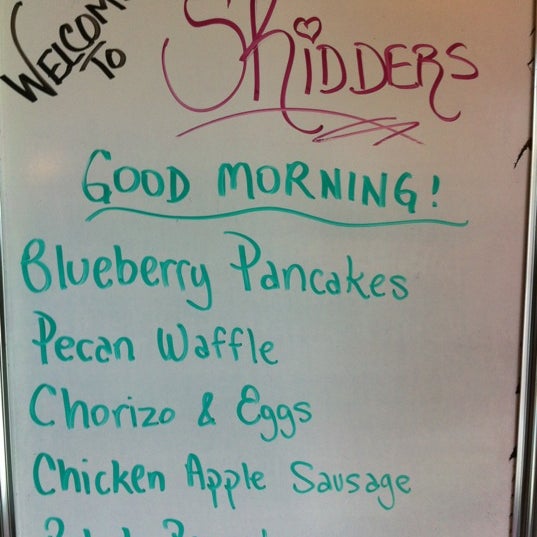 WELCOME TO
SKIDDERS
GOOD MORNING!
Blueberry Pancakes
Pecan Waffle
Chorizo & Eggs
Chicken Apple Sausage